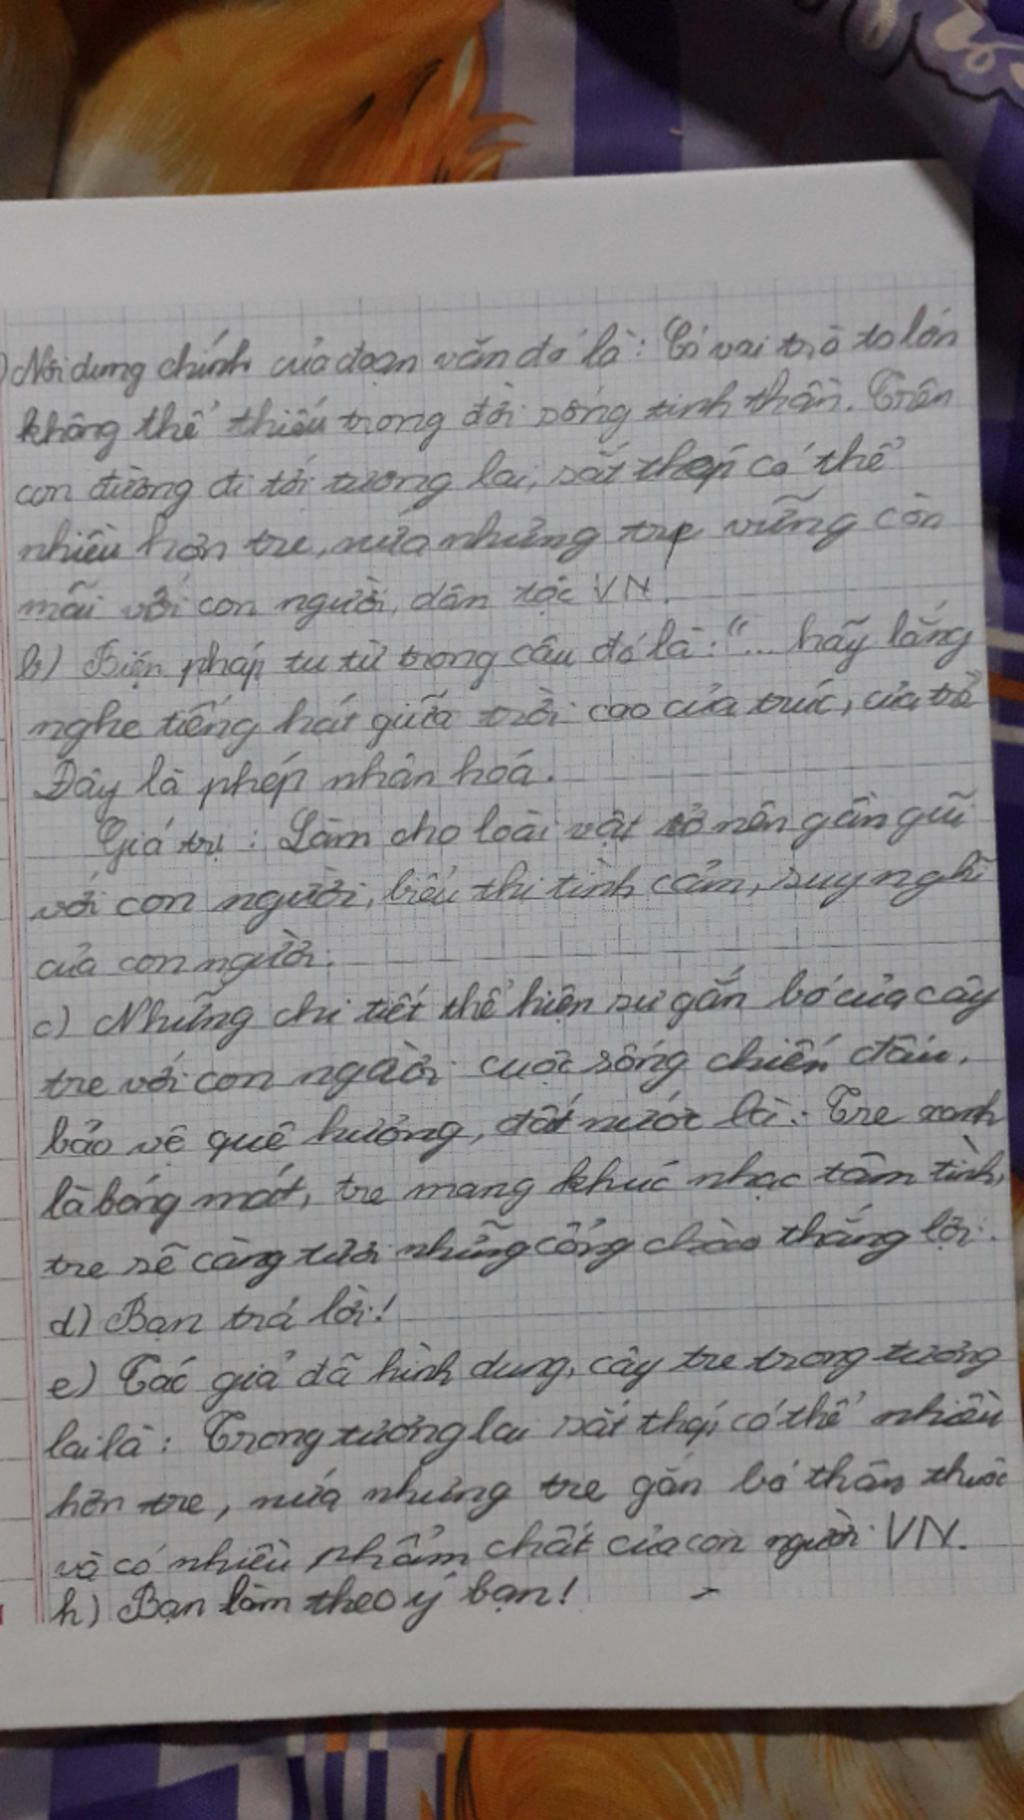 ) Nội dung chính của đoạn văn đó là: Có vai trò to lớn
không thể thiếu trong đời sống tinh thần. Trên
con đường đi tới tương lai, sắt thép có thể
nhiều hơn tre, nứa nhưng tre vững còn
mãi với con người, dân tộc VN.
b) Biện pháp tu từ trong câu đó là: "... hãy lắng
nghe tiếng hát giữa trời cao của trúc, của tre
Đây là phép nhân hoá.
Giá trị: Làm cho loài vật trở nên gần gũi
với con người, biểu thị tình cảm, suy nghĩ
của con người.
c) Những chi tiết thể hiện sự gắn bó của cây
tre với con người cuộc sống chiến đấu,
bảo vệ quê hương, đất nước là: Tre xanh
là bóng mát, tre mang khúc nhạc tâm tình,
tre sẽ càng tươi những cổng chào thắng lợi.
d) Bạn trả lời!
e) Tác giả đã hình dung, cây tre trong tương
lai là: Trong tương lai sắt thép có thể nhiều
hơn tre, nứa nhưng tre gắn bó thân thuộc
và có nhiều phẩm chất của con người VN.
h) Bạn làm theo ý bạn!